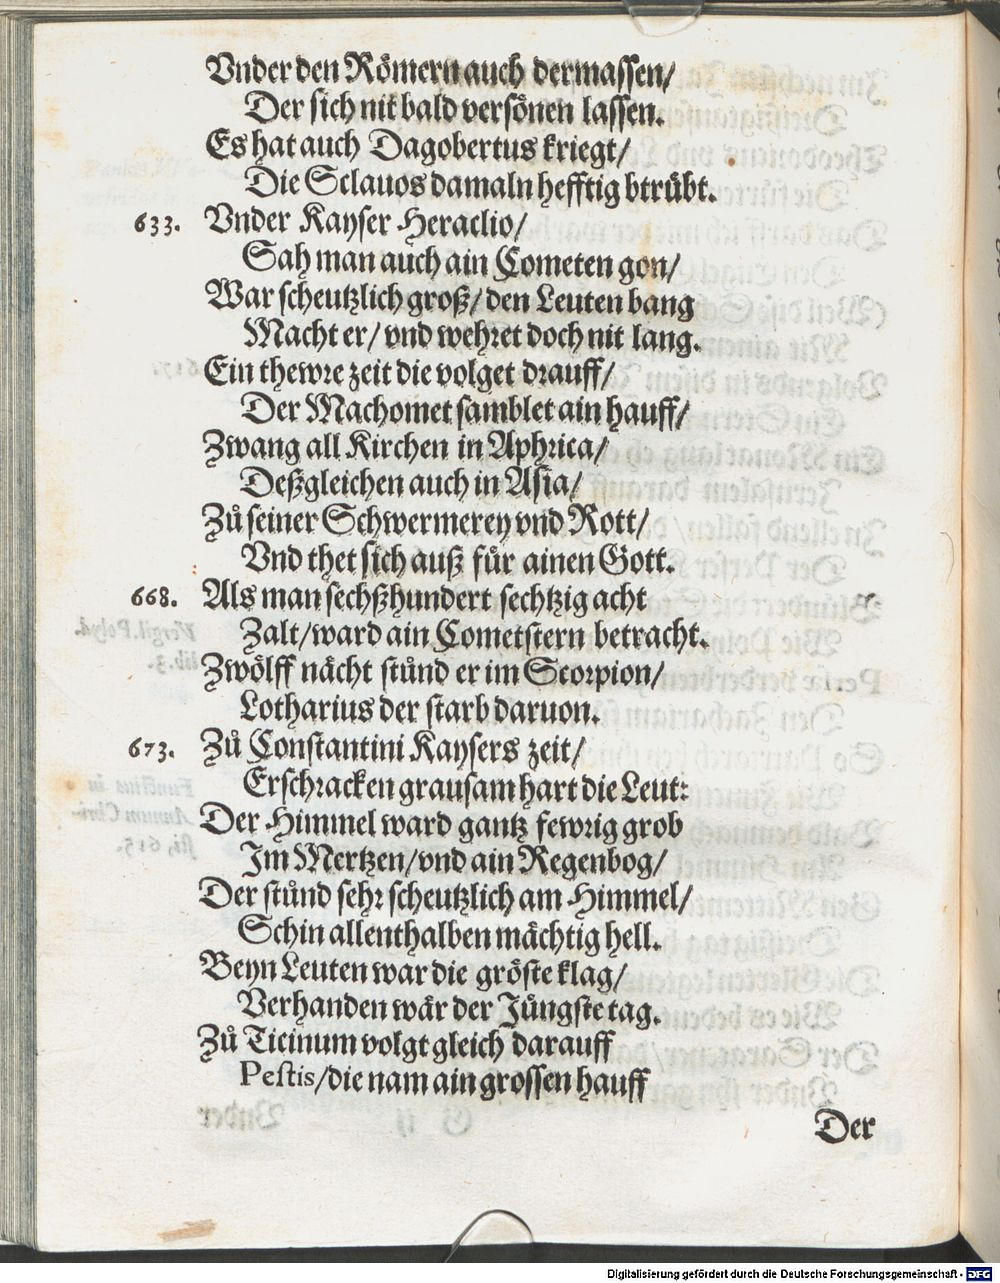 Vnder den Römern auch dermassen/
Der sich nit bald versönen lassen.
Es hat auch Dagobertus kriegt/
Die Sclauos damaln hefftig btrübt.
633. Vnder Kayser Heraclio/
Sah man auch ain Cometen gon/
War scheutzlich groß/ den Leuten bang
Macht er/ vnd wehret doch nit lang.
Ein thewre zeit die volget drauff/
Der Machomet samblet ain hauff/
Zwang all Kirchen in Aphrica/
Deßgleichen auch in Asia/
Zů seiner Schwermerey vnd Rott/
Vnd thet sich auß für ainen Gott.
668. Als man sechßhundert sechtzig acht
Zalt/ ward ain Cometstern betracht.
Zwölff nächt stůnd er im Scorpion/
Lotharius der starb daruon.
673. Zů Constantini Kaysers zeit/
Erschracken grausam hart die Leut:
Der Himmel ward gantz fewrig grob
Im Mertzen/ vnd ain Regenbog/
Der stůnd sehr scheutzlich am Himmel/
Schin allenthalben mächtig hell.
Beyn Leuten war die gröste klag/
Verhanden wär der Jüngste tag.
Zů Ticinum volgt gleich darauff
Pestis/ die nam ain grossen hauff
Der
Digitalisierung gefördert durch die Deutsche Forschungsgemeinschaft - DFG